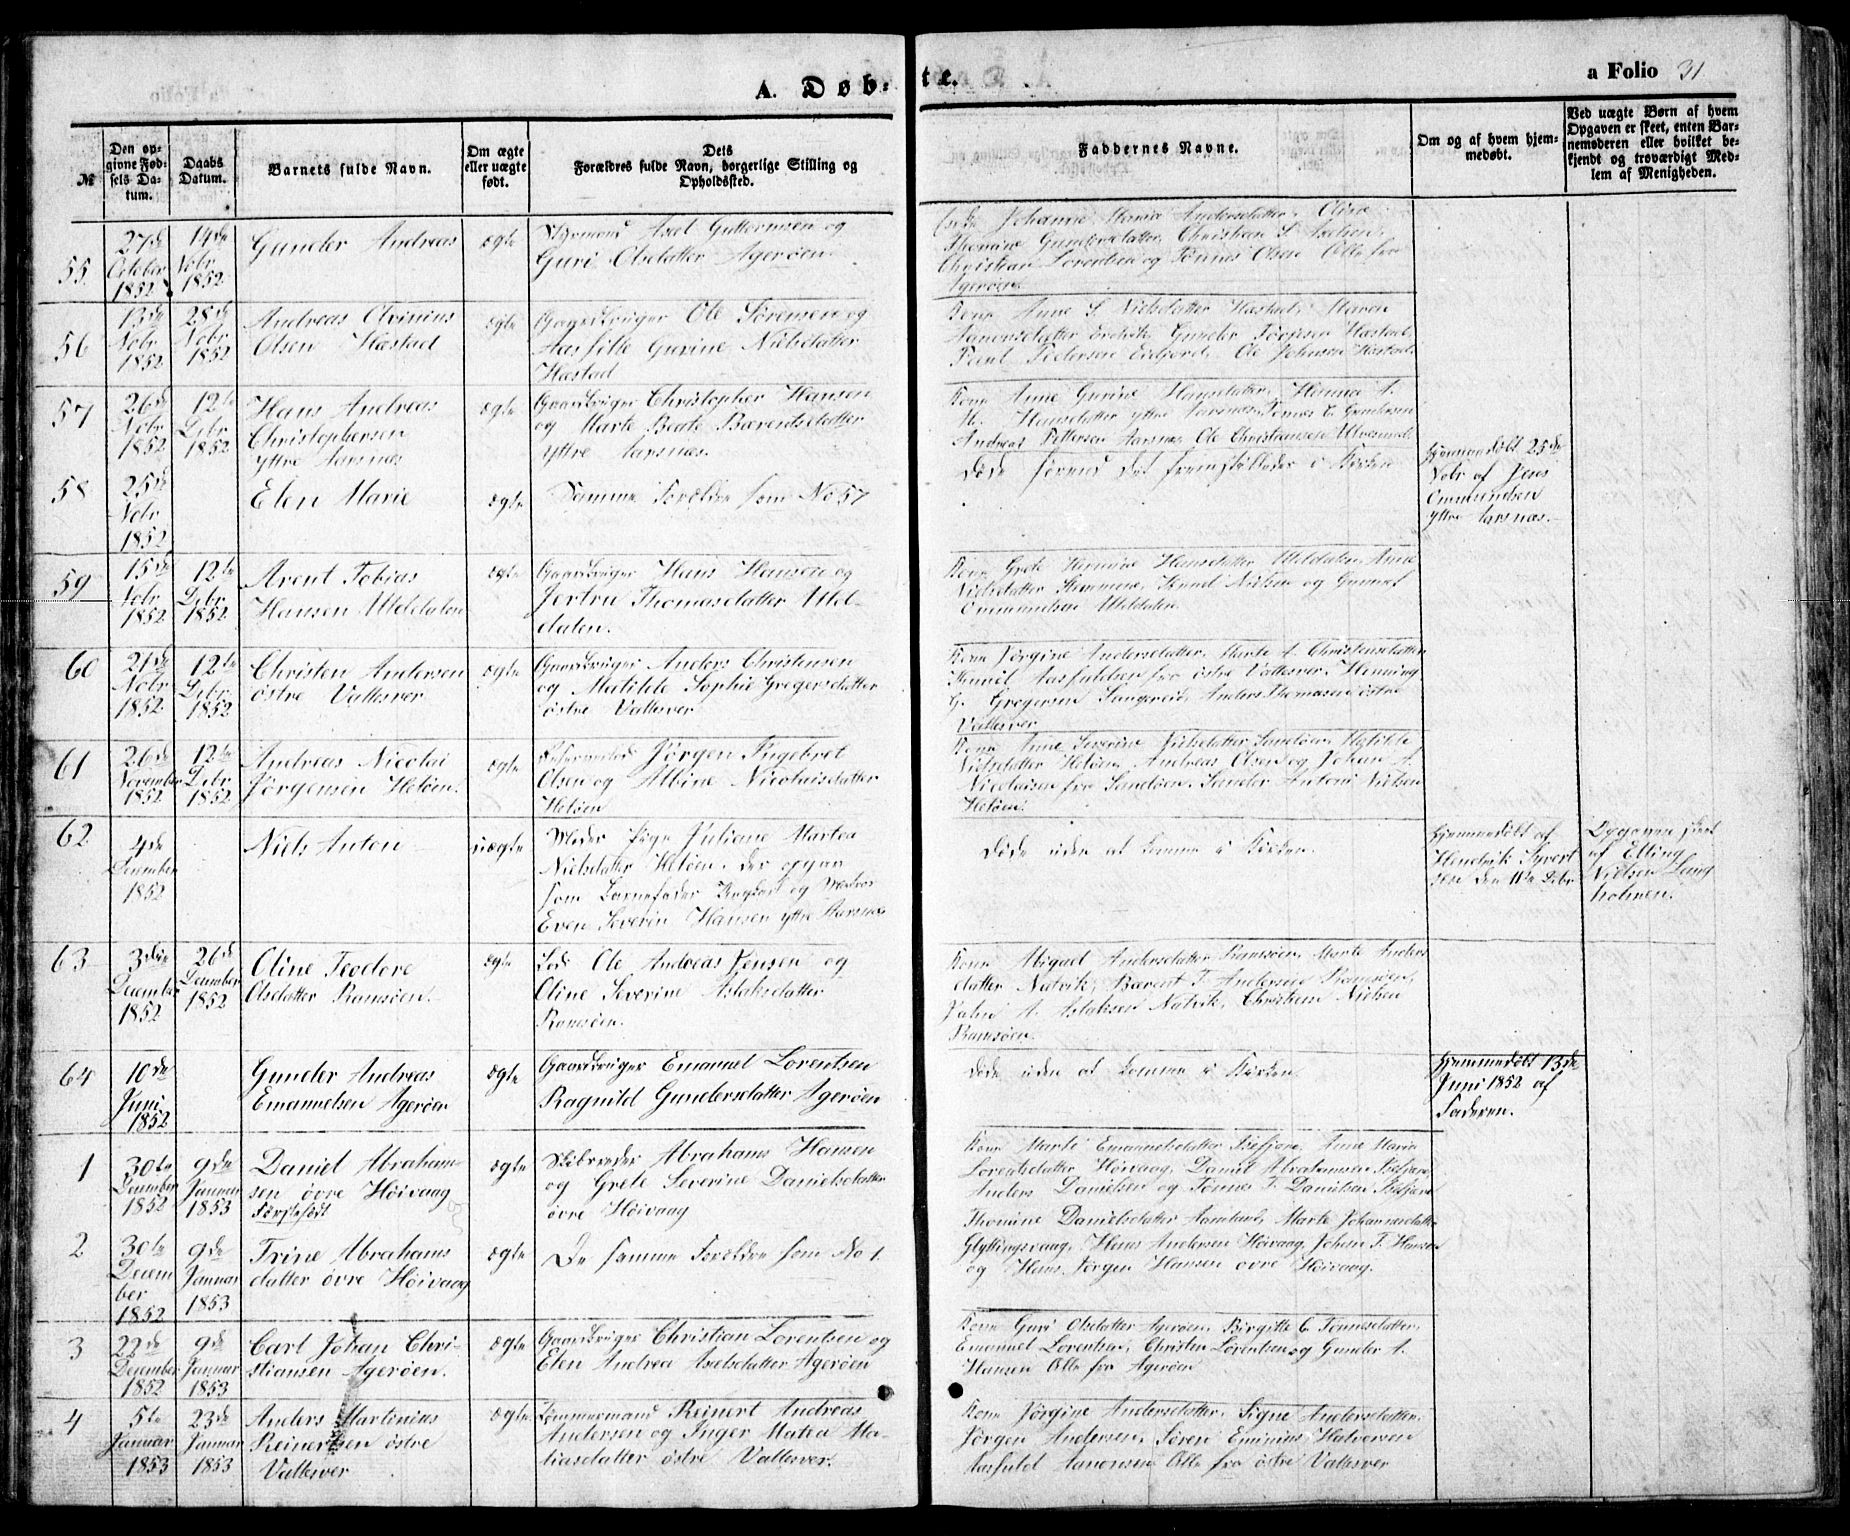 A. Døbte.
a Folio 31
№
Den opgivne Fødsels Datum.
Daabs Datum.
Barnets fulde Navn.
Om ægte eller uægte født.
Dets Forældres fulde Navn, borgerlige Stilling og Opholdssted.
Faddernes Navne.
Om og af hvem hjemmedøbt.
Ved uægte Børn af hvem Opgaven er skeet, enten Barnemoderen eller hvilket bekjendt og troværdigt Medlem af Menigheden.
55
27de October 1852
14de Novbr 1852
Gunder Andreas
ægte
Styrmand Axel Guttormsen og
Guri Olsdatter Agerøen
Johanne Maria Andersdatter, Oline
Thomine Gundersdatter, Christian S.
Christian Lorentsen og Tønnes Olsen Alle fra
Agerøen
56
13de Novbr 1852
28de Novbr 1852
Andreas Olvinius
Olsen Hæstad
ægte
Gaardbruger Ole Sørensen og
Aasille Gurine Nielsdatter
Hæstad
Kone Anne S. Nielsdatter Hæstad, Maren
Aanonsdatter Gunder Hæstad,
Paul Pedersen Ole Johnsen Hæstad
57
26de Novbr 1852
12te Debr 1852
Hans Andreas
Christophersen
yttre Aarsnæs
ægte
Gaardbruger Christopher Hansen
og Marte Beate Bærentsdatter
yttre Aarsnæs.
Kone Anne Gurine Hansdatter, Hanna A.
M. Hansdatter yttre Aarsnæs, Tønnes C. Gundersen
Andreas Pettersen Aarsnæs, Ole Christiansen
58
25de Novbr 1852
Elen Marie
ægte
Samme Forældre som No 57
Døde førend det fremstilledes i Kirken
Hjemmedøbt 25de
Novbr af Jens
Ommundsen
yttre Aarsnæs.
59
15de Novbr 1852
12te Debr 1852
Arent Tobias
Hansen Uldalen
ægte
Gaardbruger Hans Hansen og
Jertru Thomasdatter Ul-
dalen.
Kone Grete Hansdatter Uldalen, Anne
Nielsdatter Knud Nielsen og Gunnuf
Ommundsen Uldalen
60
21de Novbr 1852
12te Debr 1852
Christen Andersen
østre Vallesvær
ægte
Gaardbruger Anders Christensen
og Matilde Sophie Gregersdatter
østre Vallesvær
Kone Jørgine Andersdatter, Marte A. Christensdatter
Aasfuldsen fra østre Vallesvær, Henning
G. Gregersen Anders Thomasen østre
Vallesvær
61
26de November 1852
12te Debr 1852
Andreas Nicolai
Jørgensen Heløen.
ægte
Jørgen Ingebret
Olsen og Albine Nicolaisdatter
Heløen
Kone Anne Severine Nielsdatter Sandøen, Matilde
Nielsdatter Heløen, Andreas Olsen og Johan A.
Nicolaisen fra Sandøen, Antoni Nielsen
Heløen.
62
4de December 1852
Niels Anton
uægte
Moder Pige Juliane Martea
Nielsdatter Heløen, der opgav
som Barnefader Ungkarl og Matros
Even Severin Hansen yttre Aarsnæs
Døde uden at komme i Kirken.
Hjemmedøbt af
Hendrik Syvert
sen den 11te Debr
Opgaven skeet
af Elling
Nielsen Lang
holmen.
63
3die December 1852
26de December 1852
Oline Teodore
Olsdatter Ramsøen.
ægte
Lods Ole Andreas Jensen og
Oline Severine Aslaksdatter
Ramsøen.
Kone Abigael Andersdatter Ramsøen, Marte Anders
datter Natvik, Bærent T. Andersen Ramsøen,
John A. Aslaksen Natvik, Christian Nielsen
Ramsøen.
64
10de Juni 1852
Gunder Andreas
Emanuelsen Agerøen
ægte
Gaardbruger Emanuel Lorentsen
Ragnild Gundersdatter Agerøen
Døde uden at komme i Kirken
Hjemmedøbt 13de
Juni 1852 af
Faderen.
1
30te December 1852
9de Januar 1853
Daniel Abraham-
sen øvre Høivaag
Førstefødt
ægte
Skibsreder Abraham Hansen
og Grete Severine Danielsdatter
øvre Høivaag
Kone Marte Emanuelsdatter Anne Maria
Lorentsdatter Høivaag, Daniel Abrahamsen
Anders Danielsen og Tønnes T. Danielsen
2
30te December 1852
9de Januar 1853
Trine Abrahams
datter øvre Høivaag
ægte
De samme Forældre som No 1.
Thomine Danielsdatter Aamland, Marte Johannesdatter
Hans Andersen Høivaag, Johan T. Hansen
og Hans Jørgen Hansen øvre Høivaag.
3
22de December 1852
9de Januar 1853
Carl Johan Chri-
stiansen Agerøen.
ægte
Gaardbruger Christian Lorentsen og
Elen Andrea Axelsdatter Agerøen
Kone Guri Olsdatter Agerøen, Birgitte C. Tønnesdatter,
Emanuel Lorentsen, Christen Lorentsen og Gunder A.
Hansen Alle fra Agerøen
4
5te Januar 1853
23de Januar 1853
Anders Martinius
Reinertsen østre
Vallesvær
ægte
Tømmermand Reinert Andreas
Andersen og Inger Matea Ma-
tiasdatter østre Vallesvær.
Kone Jørgine Andersdatter, Signe Andersdatter,
Jørgen Andersen, Søren Eminius Halvorsen
Aasfuld Aanonsen Alle fra østre Vallesvær